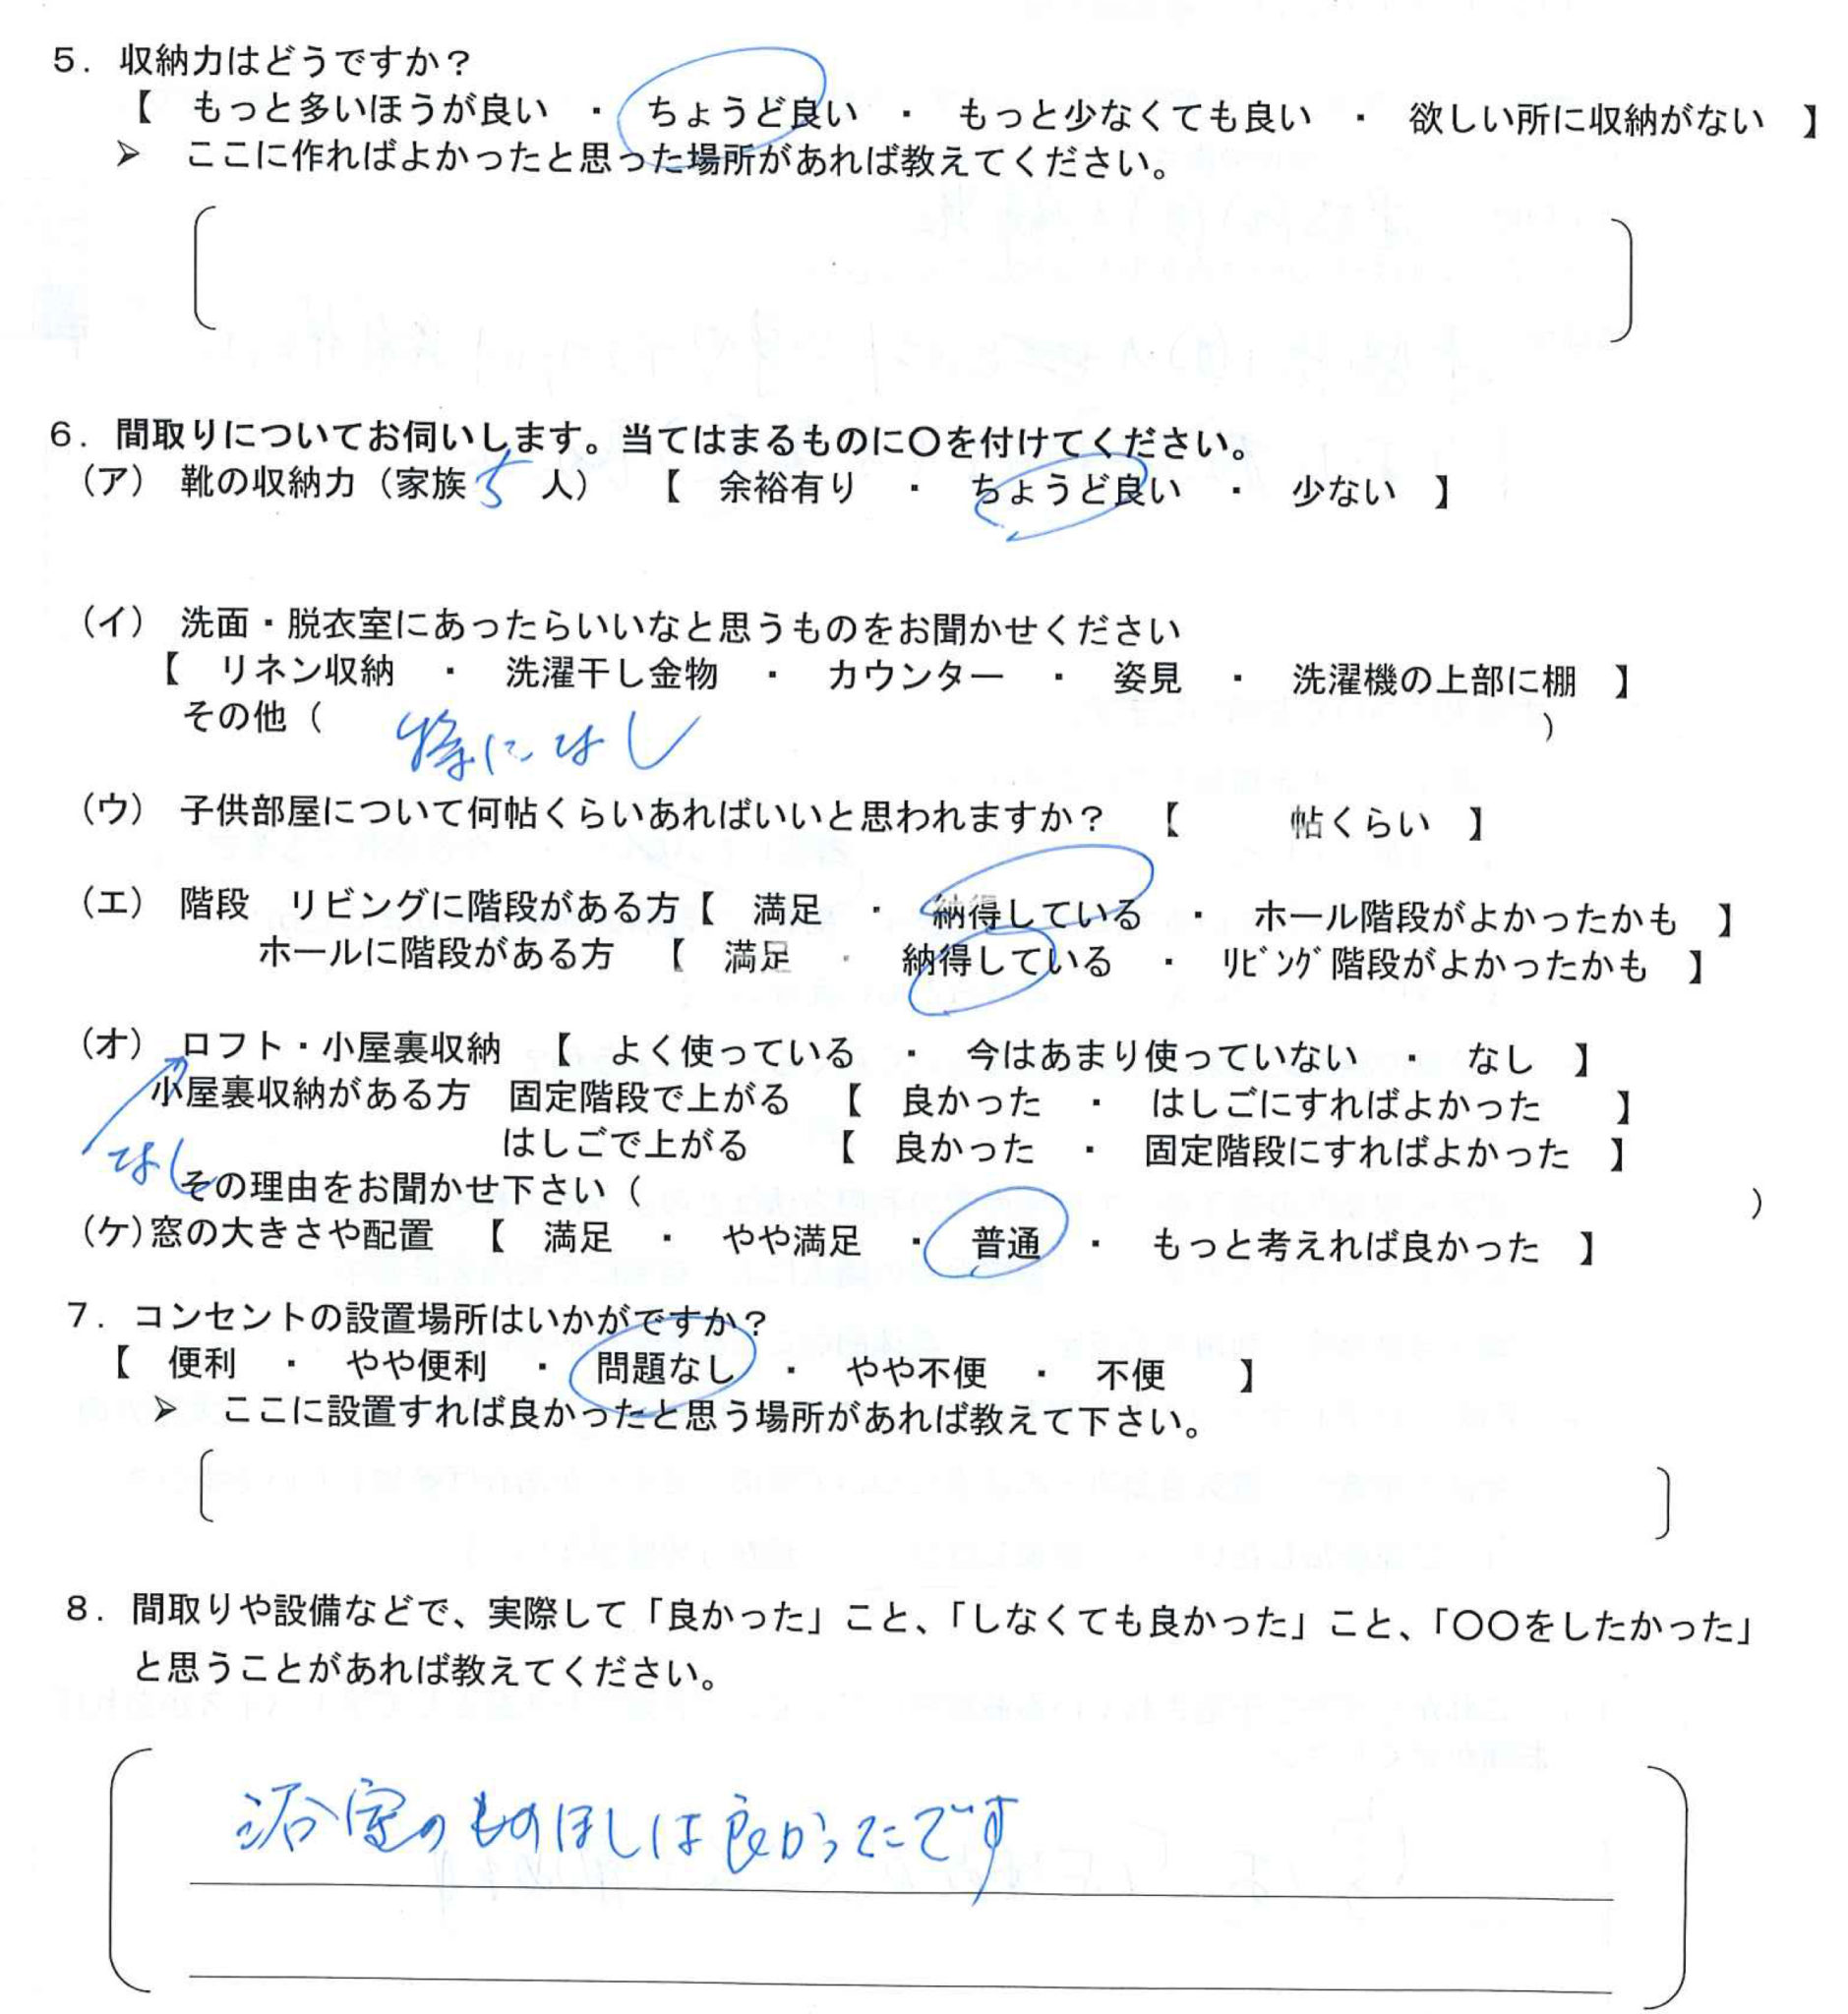 ５．収納力はどうですか？
【　もっと多いほうが良い　・　ちょうど良い　・　もっと少なくても良い　・　欲しい所に収納がない　】
➢　ここに作ればよかったと思った場所があれば教えてください。
６．間取りについてお伺いします。当てはまるものに〇を付けてください。
（ア）　靴の収納力（家族 5 人）　【　余裕有り　・　ちょうど良い　・　少ない　】
（イ）　洗面・脱衣室にあったらいいなと思うものをお聞かせください
【　リネン収納　・　洗濯干し金物　・　カウンター　・　姿見　・　洗濯機の上部に棚　】
その他（　特になし　）
（ウ）　子供部屋について何帖くらいあればいいと思われますか？　【　　　帖くらい　】
（エ）　階段　リビングに階段がある方【　満足　・　納得している　・　ホール階段がよかったかも　】
ホールに階段がある方　【　満足　・　納得している　・　ﾘﾋﾞﾝｸﾞ階段がよかったかも　】
（オ）　ロフト・小屋裏収納　【　よく使っている　・　今はあまり使っていない　・　なし　】
小屋裏収納がある方　固定階段で上がる　【　良かった　・　はしごにすればよかった　】
はしごで上がる　【　良かった　・　固定階段にすればよかった　】
なし
その理由をお聞かせ下さい（　　　）
（ケ）窓の大きさや配置　【　満足　・　やや満足　・　普通　・　もっと考えれば良かった　】
７．コンセントの設置場所はいかがですか？
【　便利　・　やや便利　・　問題なし　・　やや不便　・　不便　】
➢　ここに設置すれば良かったと思う場所があれば教えて下さい。
８．間取りや設備などで、実際して「良かった」こと、「しなくても良かった」こと、「〇〇をしたかった」
と思うことがあれば教えてください。
浴室のものほしは良かったです